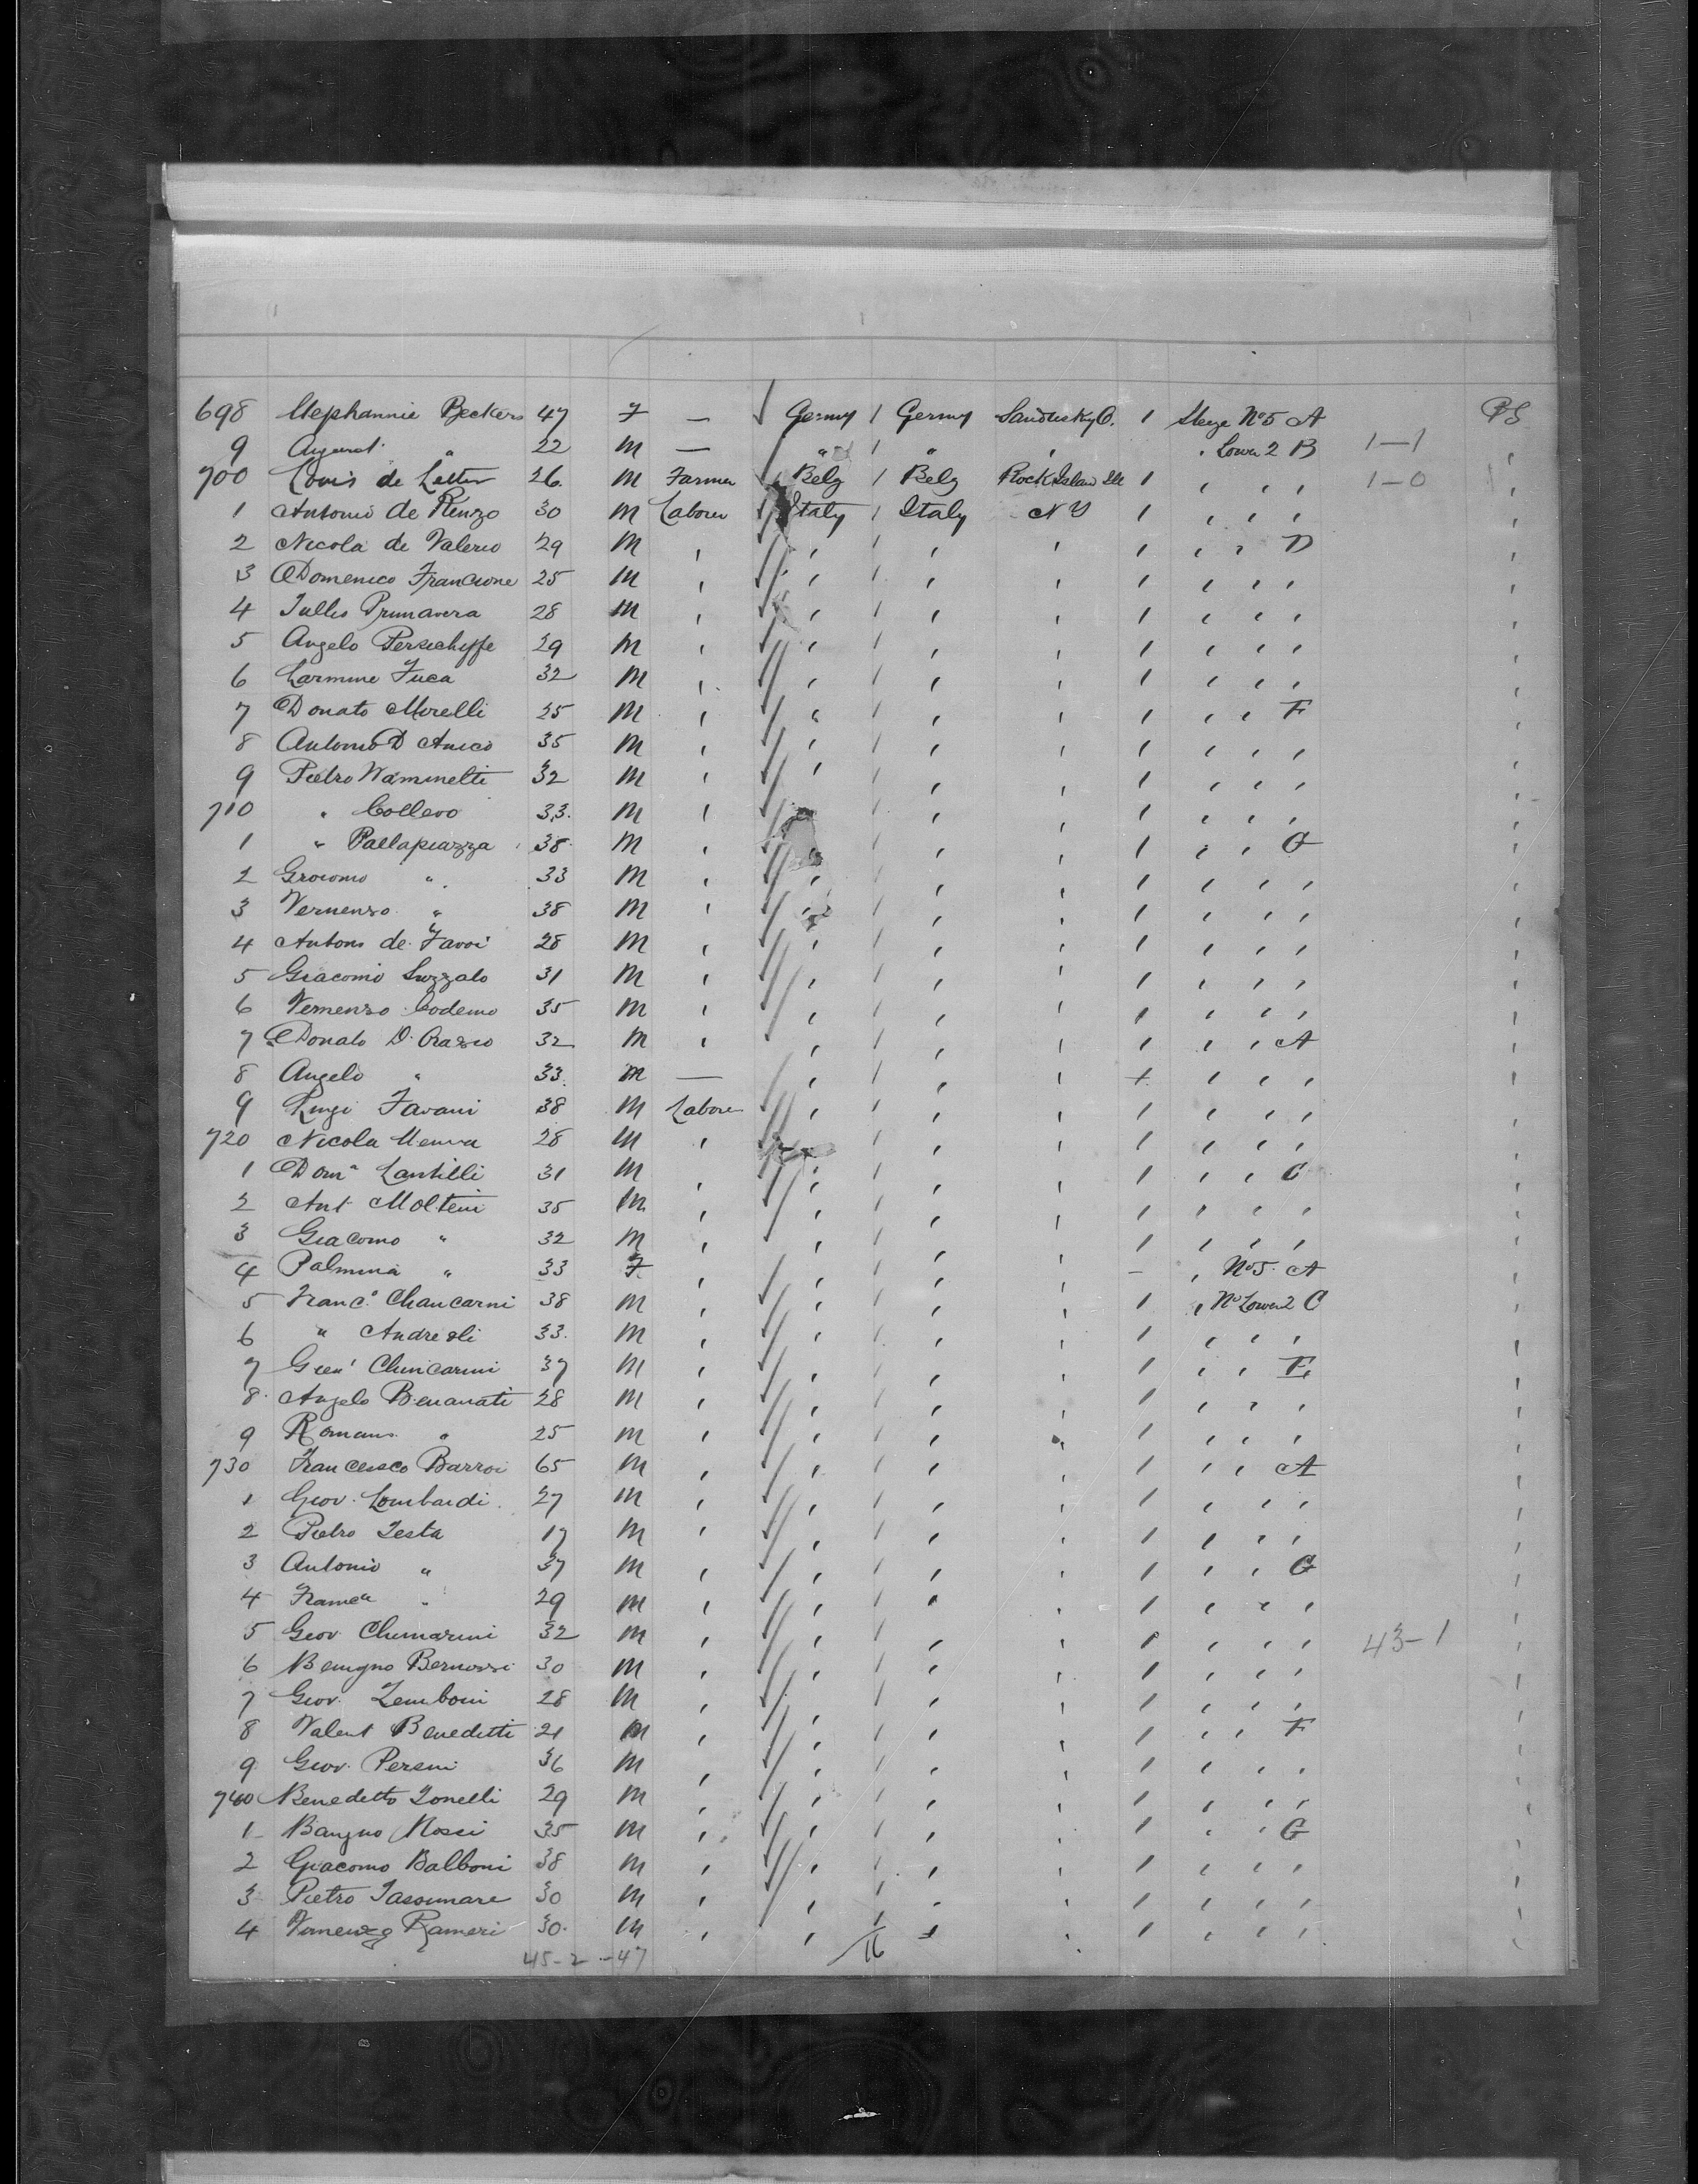 698 Stephannie Beckers 47 F — Germy / Germy Sandusky O. 1 Stege No 5 A PS
9 August " 22 M — " / " ' ' Lower 2 B 1—1 '
700 Louis de Letter 26. M Farmer Belg / Belg Rock Islan Ill 1 ' ' ' 1—0 '
1 Antonio de Renzo 30 M Laborer Italy / Italy N Y 1 ' ' ' '
2 Nicola de Valerio 29 M ' ' / ' ' 1 ' ' D '
3 Domenico Francione 25 M ' ' / ' ' 1 ' ' ' '
4 Tullio Primavera 28 M ' ' / ' ' 1 ' ' ' '
5 Angelo 29 M ' ' / ' ' 1 ' ' ' '
6 Carmine Fuca 32 M ' ' / ' ' 1 ' ' ' '
7 Donato Morelli 25 M ' " / ' ' 1 ' ' F '
8 Antonio D Amico 35 M ' ' / ' ' 1 ' ' ' '
9 Pietro 32 M ' ' / ' ' 1 ' ' ' '
710 " Collevo 33. M ' / ' ' 1 ' ' ' '
1 " Pallapiazza 38 M ' / ' ' 1 ' ' G '
2 " 33 M ' ' / ' ' 1 ' ' ' '
3 " 38 M ' ' / ' ' 1 ' ' ' '
4 Antoni de 28 M ' ' / ' ' 1 ' ' ' '
5 Giacomo 31 M ' ' / ' ' 1 ' ' ' '
6 Codemo 35 M ' ' / ' ' 1 ' ' ' '
7 Donato D. Orazio 32 M ' ' / ' ' 1 ' ' A '
8 Angelo " 33. M — ' / ' ' + ' ' ' '
9 Luigi Favani 38 M Labore ' / ' ' 1 ' ' ' '
720 Nicola 28 M ' / ' ' 1 ' ' ' '
1 Doma Cantilli 31 M ' ' / ' ' 1 ' ' C '
2 Ant Molteni 35 M ' ' / ' ' 1 ' ' ' '
3 Giacomo " 32 M ' ' / ' ' 1 ' ' ' '
4 Palmina " 33 F. ' ' / ' ' — ' No 5 A '
5 Franco Chancarni 38 M ' ' / ' ' 1 ' No Lower 2 C '
6 " Andreoli 33. M ' ' / ' ' 1 ' ' ' '
7 Chincarini 37 M ' ' / ' ' 1 ' ' E '
8 Angelo Benanati 28 M ' ' / ' ' 1 ' ' ' '
9 Romano " 25 M ' ' / ' ' 1 ' ' ' '
730 Francesco Barroi 65 M ' ' / ' ' 1 ' ' A '
1 Giov. Lombardi 27 M ' ' / ' ' 1 ' ' ' '
2 Pietro Testa 17 M ' ' / ' ' 1 ' ' ' '
3 Antonio " 37 M ' ' / ' ' 1 ' ' G '
4 " 29 M ' ' / ' ' 1 ' ' ' '
5 Giov 32 M ' ' / ' ' 1 ' ' ' 43-1 '
6 Benigno 30 M ' ' / ' ' 1 ' ' ' '
7 Giov. Zemboni 28 M ' ' / ' ' 1 ' ' ' '
8 Valent Benedetti 21 M ' ' / ' ' 1 ' ' F '
9 Giov. Persini 36 M ' ' / ' ' 1 ' ' ' '
740 Benedetto Tonelli 29 M ' ' / ' ' 1 ' ' ' '
1 35 M ' ' / ' ' 1 ' ' G '
2 Giacomo Balboni 38 M ' ' / ' ' 1 ' ' ' '
3 Pietro 30 M ' ' / ' ' 1 ' ' ' '
4 Rameri 30. M ' ' / ' ' 1 ' ' ' '
45-2-47 16